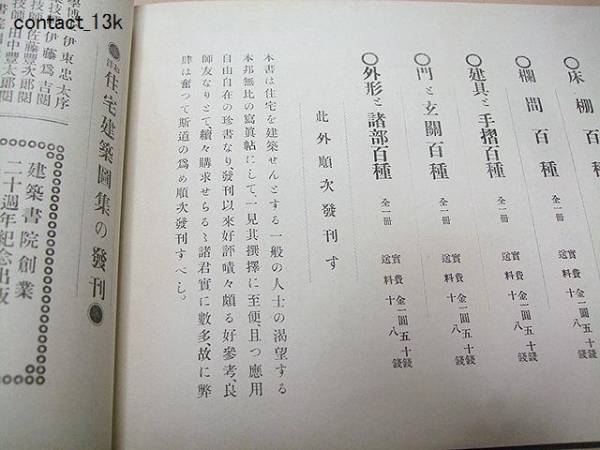 contact_13k
床棚百種
欄間百種
建具と手摺百種
門と玄關百種
外形と諸部百種
全一冊
全一冊
全一冊
實費金一圓五十錢
送料十八錢
實費金一圓五十錢
送料十八錢
實費金一圓五十錢
送料十八
實費金一圓五十錢
送料十八
此外順次發刊す
本書は住宅を建築せんとする一般の人士の渴望する
本邦無比の寫眞帖にして、一見其撰擇に至便、且つ應用
自由自在の珍書なり發刊以來好評嘖々頗る好參考、良
師友なりとて續々購求せらるゝ諸君實に數多故に弊
肆は奮つて斯道の爲め順次發刊すべし。
學博伊東忠太序
技師伊藤爲吉閱
技師佐藤豐次郞閱
技師田中豐太郞閱
住宅建築圖集の發刊
建築書院創業
二十週年紀念出版